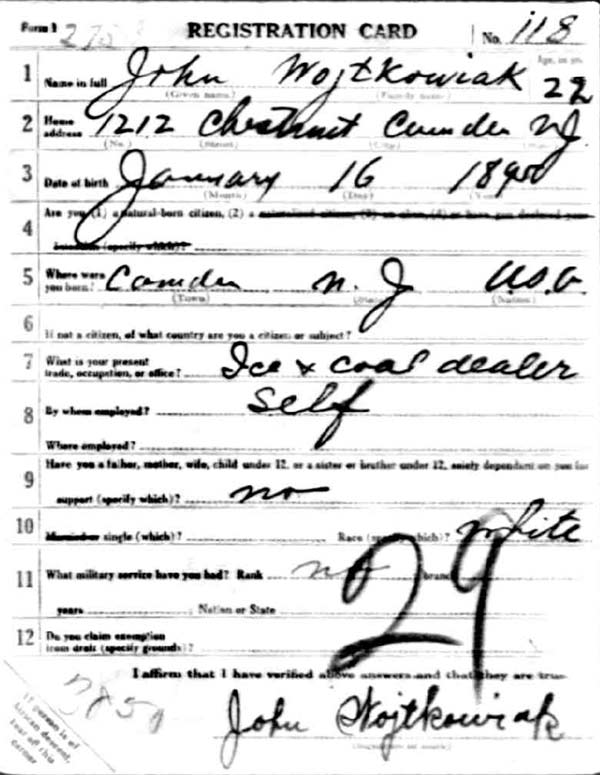 Form 1 275 REGISTRATION CARD No. 118
Age, in yrs.
1 Name in full John Wojtkowiak 22
(Given name) (Family name)
2 Home address 1212 Chestnut Camden NJ
(No.) (Street) (City) (State)
3 Date of birth January 16
(Month) (Day) (Year)
4 Are you (1) a natural-born citizen, (2) a naturalized citizen, (3) an alien, (4) or have you declared your
intention (specify which)?
5 Where were you born? Camden N. J U.S.A
(Town) (State) (Nation)
6 If not a citizen, of what country are you a citizen or subject?
7 What is your present trade, occupation, or office? Ice & coal dealer
8 By whom employed? Self
Where employed?
9 Have you a father, mother, wife, child under 12, or a sister or brother under 12, solely dependent on you for
support (specify which)? no
10 Married or single (which)? Race (specify which)? White
11 What military service have you had? Rank no branch
years Nation or State
29
12 Do you claim exemption from draft (specify grounds)?
I affirm that I have verified above answers and that they are true.
John Wojtkowiak
(Signature or mark)
If person is of
African descent,
tear off this
corner